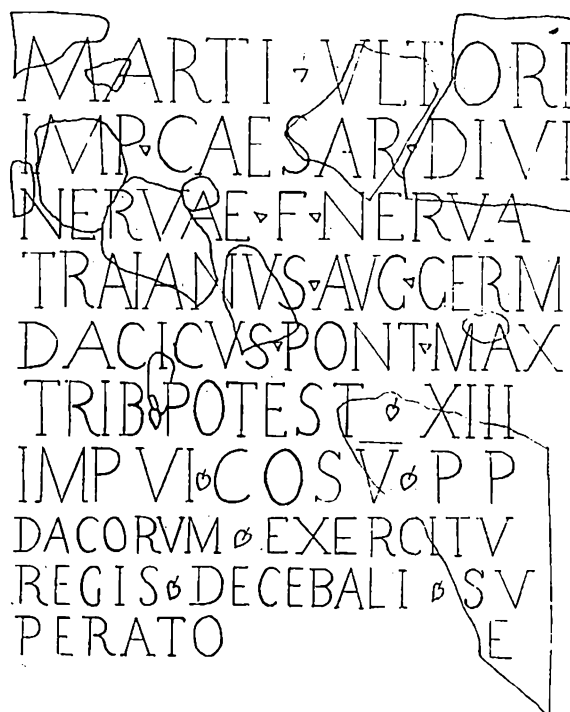 MARTI ▿ VLTORI
IMP▿CAESAR▿DIVI
NERVAE▿F▿NERVA
TRAIANVS▿AVG▿GERM
DACICVS▿PONT▿MAX
TRIB▿POTEST ❦ XIII
IMP VI❦COS V̅❦P P
DACORVM ❦ EXERCITV
REGIS❦DECEBALI ❦ SV
PERATO E